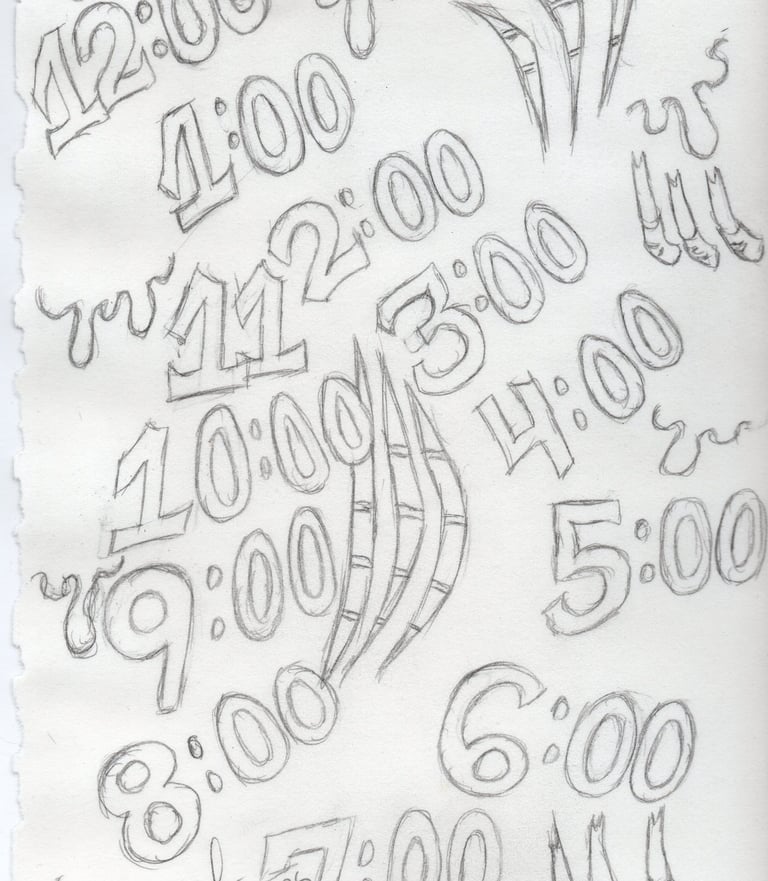 12:00
1:00
2:00
11
3:00
4:00
10:00
5:00
9:00
8:00
6:00
7:00